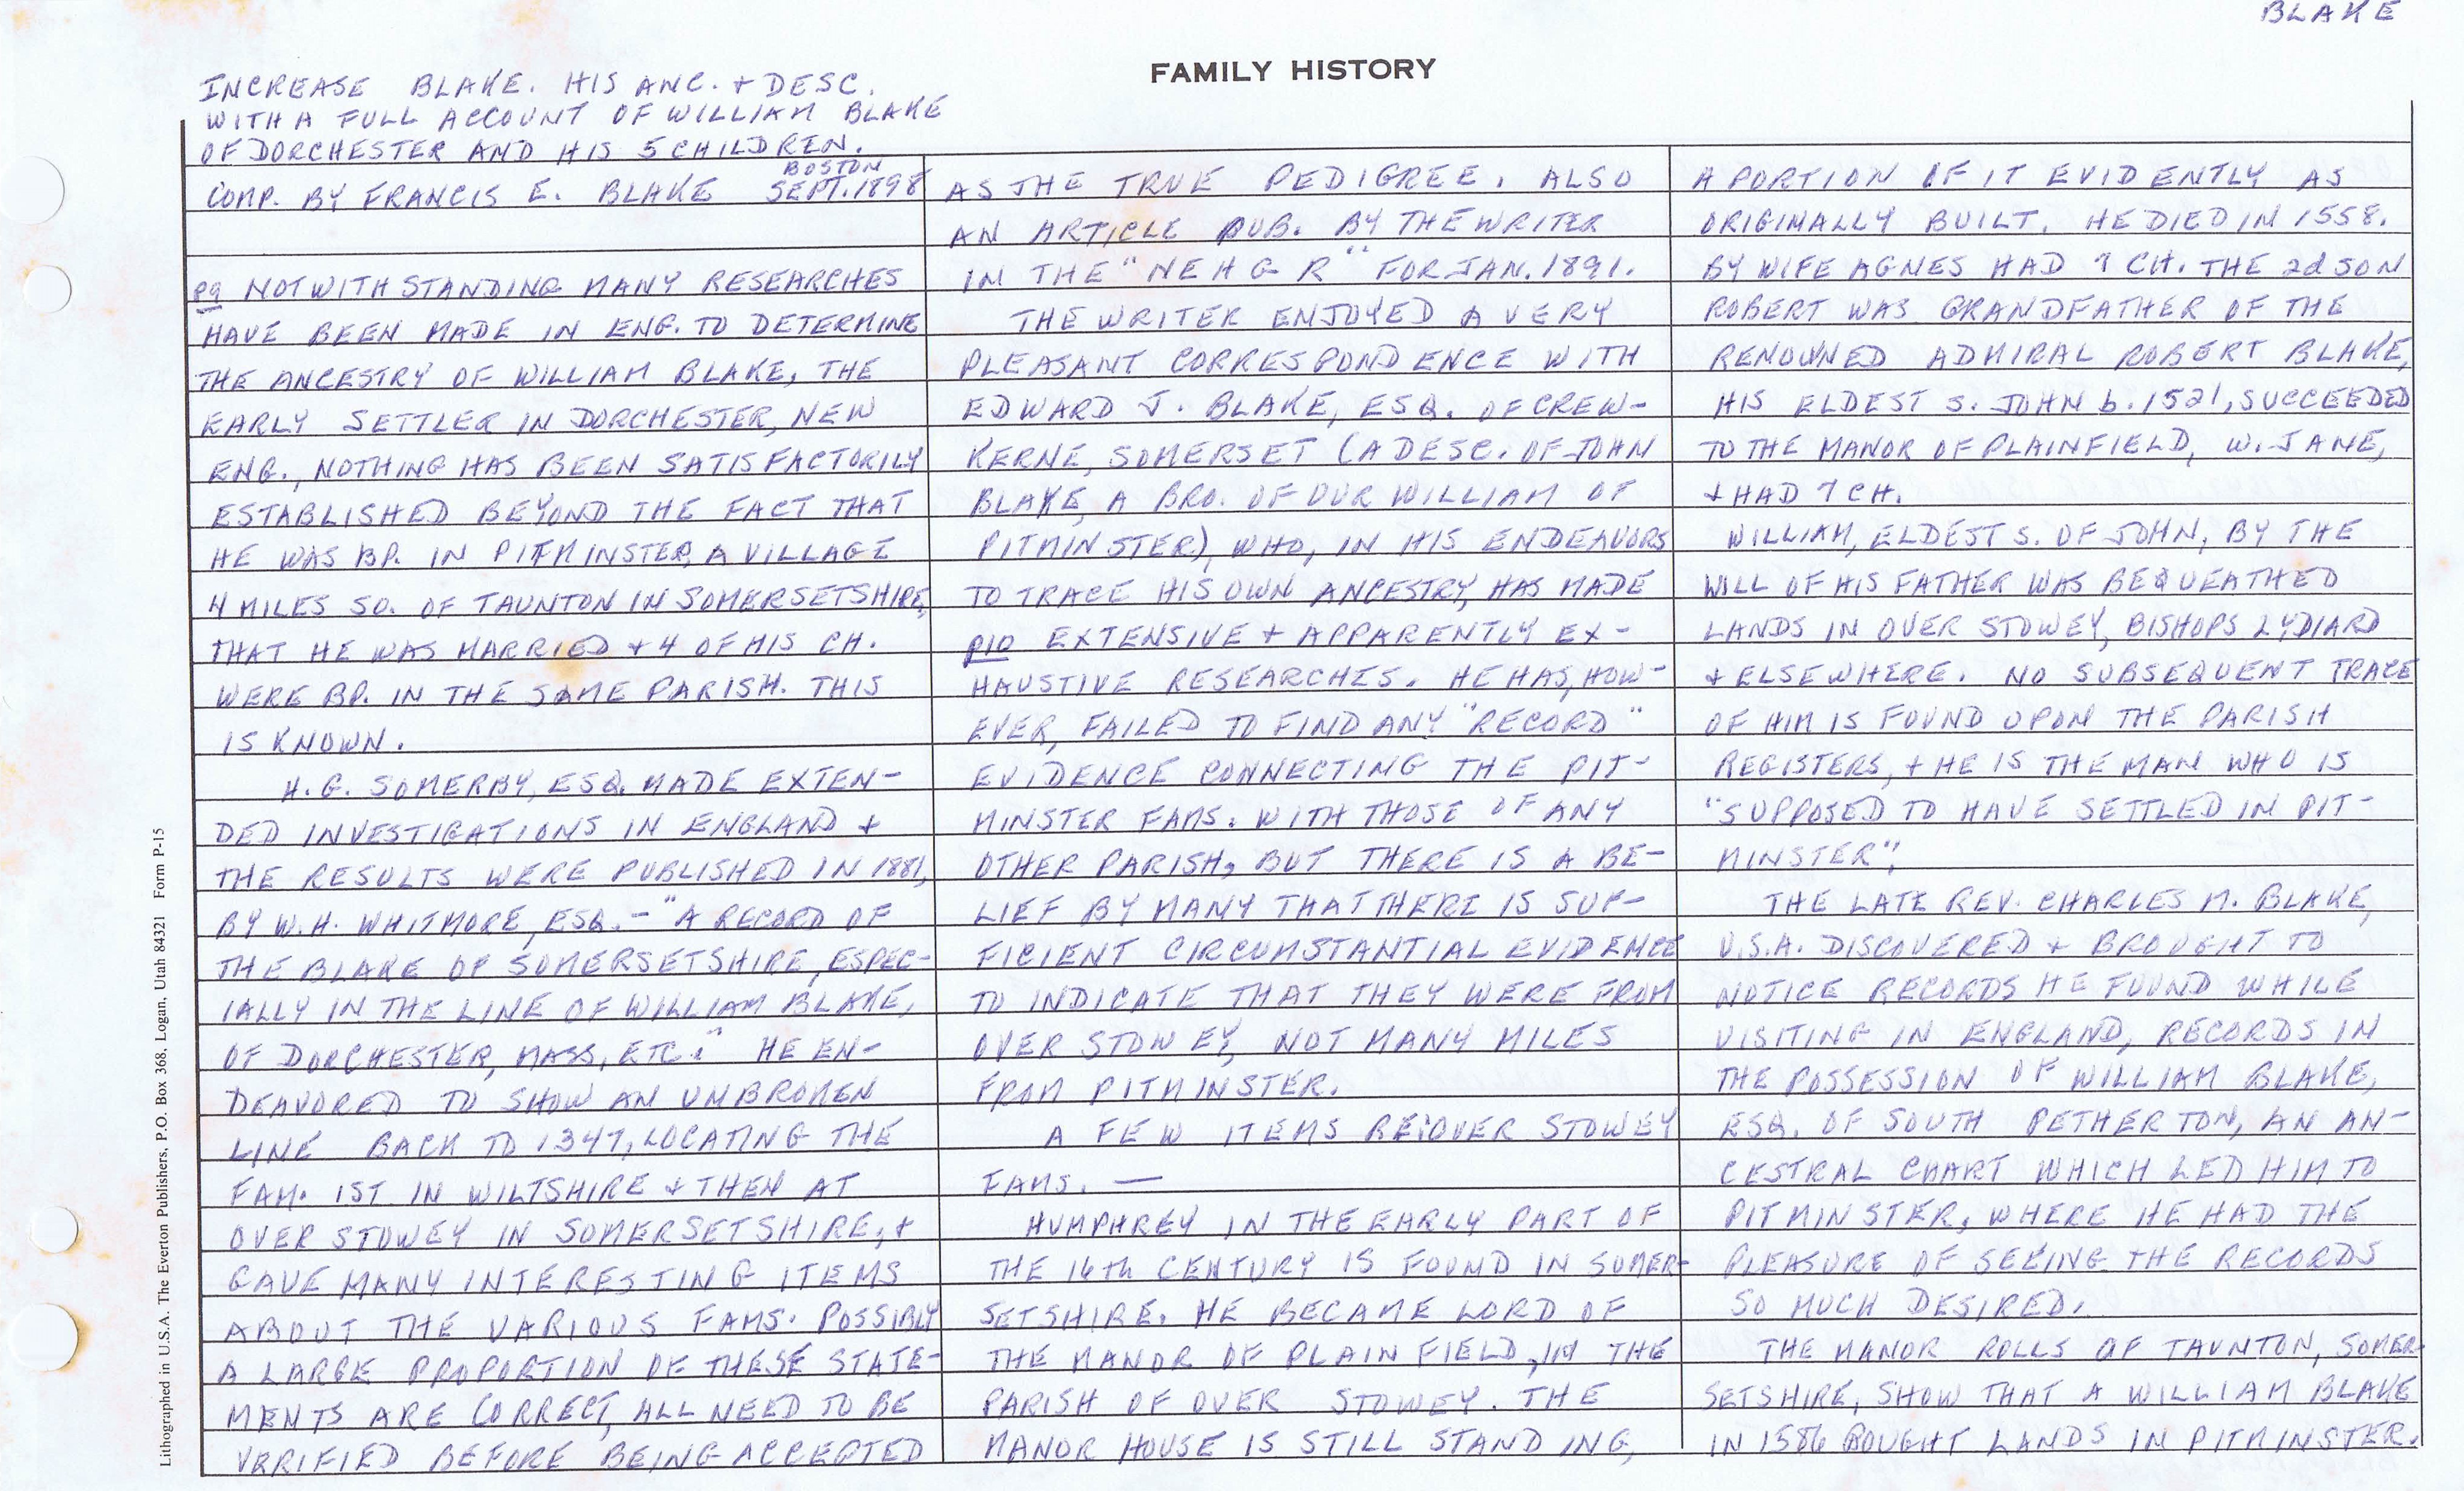 BLAKE
FAMILY HISTORY
INCREASE BLAKE. HIS ANC. + DESC.
WITH A FULL ACCOUNT OF WILLIAM BLAKE
OF DORCHESTER AND HIS 5 CHILDREN.
BOSTON
COMP. BY FRANCIS E. BLAKE SEPT. 1898
P9 NOTWITHSTANDING MANY RESEARCHES
HAVE BEEN MADE IN ENG. TO DETERMINE
THE ANCESTRY OF WILLIAM BLAKE, THE
EARLY SETTLER IN DORCHESTER, NEW
ENG., NOTHING HAS BEEN SATISFACTORILY
ESTABLISHED BEYOND THE FACT THAT
HE WAS BP. IN PITMINSTER, A VILLAGE
4 MILES SO. OF TAUNTON IN SOMERSETSHIRE,
THAT HE WAS MARRIED + 4 OF HIS CH.
WERE BP. IN THE SAME PARISH. THIS
IS KNOWN.
H. G. SOMERBY, ESQ. MADE EXTEN-
DED INVESTIGATIONS IN ENGLAND +
THE RESULTS WERE PUBLISHED IN 1881,
BY W. H. WHITMORE, ESQ. - "A RECORD OF
THE BLAKE OF SOMERSETSHIRE, ESPEC-
IALLY IN THE LINE OF WILLIAM BLAKE,
OF DORCHESTER, MASS, ETC." HE EN-
DEAVORED TO SHOW AN UNBROKEN
LINE BACK TO 1347, LOCATING THE
FAM. 1ST IN WILTSHIRE + THEN AT
OVER STOWEY IN SOMERSETSHIRE, +
GAVE MANY INTERESTING ITEMS
ABOUT THE VARIOUS FAMS. POSSIBLY
A LARGE PROPORTION OF THESE STATE-
MENTS ARE CORRECT, ALL NEED TO BE
VERIFIED BEFORE BEING ACCEPTED
AS THE TRUE PEDIGREE. ALSO
AN ARTICLE PUB. BY THE WRITER
IN THE "NEHGR" FOR JAN. 1891.
THE WRITER ENJOYED A VERY
PLEASANT CORRESPONDENCE WITH
EDWARD J. BLAKE, ESQ. OF CREW-
KERNE, SOMERSET (A DESC. OF JOHN
BLAKE, A BRO. OF OUR WILLIAM OF
PITMINSTER), WHO, IN HIS ENDEAVORS
TO TRACE HIS OWN ANCESTRY, HAS MADE
P10 EXTENSIVE + APPARENTLY EX-
HAUSTIVE RESEARCHES. HE HAS, HOW-
EVER, FAILED TO FIND ANY "RECORD"
EVIDENCE CONNECTING THE PIT-
MINSTER FAMS. WITH THOSE OF ANY
OTHER PARISH, BUT THERE IS A BE-
LIEF BY MANY THAT THERE IS SUF-
FICIENT CIRCUMSTANTIAL EVIDENCE
TO INDICATE THAT THEY WERE FROM
OVER STOWEY, NOT MANY MILES
FROM PITMINSTER.
A FEW ITEMS RE: OVER STOWEY
FAMS. —
HUMPHREY IN THE EARLY PART OF
THE 16TH CENTURY IS FOUND IN SOMER-
SETSHIRE. HE BECAME LORD OF
THE MANOR OF PLAINFIELD, IN THE
PARISH OF OVER STOWEY. THE
MANOR HOUSE IS STILL STANDING,
A PORTION OF IT EVIDENTLY AS
ORIGINALLY BUILT. HE DIED IN 1558.
BY WIFE AGNES HAD 7 CH. THE 2d SON
ROBERT WAS GRANDFATHER OF THE
RENOWNED ADMIRAL ROBERT BLAKE,
HIS ELDEST S. JOHN b. 1521, SUCCEEDED
TO THE MANOR OF PLAINFIELD, W. JANE,
+ HAD 7 CH.
WILLIAM, ELDEST S. OF JOHN, BY THE
WILL OF HIS FATHER WAS BEQUEATHED
LANDS IN OVER STOWEY, BISHOPS LYDIARD
+ ELSEWHERE. NO SUBSEQUENT TRACE
OF HIM IS FOUND UPON THE PARISH
REGISTERS, + HE IS THE MAN WHO IS
"SUPPOSED TO HAVE SETTLED IN PIT-
MINSTER".
THE LATE REV. CHARLES M. BLAKE,
U.S.A. DISCOVERED + BROUGHT TO
NOTICE RECORDS HE FOUND WHILE
VISITING IN ENGLAND, RECORDS IN
THE POSSESSION OF WILLIAM BLAKE,
ESQ. OF SOUTH PETHERTON, AN AN-
CESTRAL CHART WHICH LED HIM TO
PITMINSTER, WHERE HE HAD THE
PLEASURE OF SEEING THE RECORDS
SO MUCH DESIRED.
THE MANOR ROLLS OF TAUNTON, SOMER-
SETSHIRE, SHOW THAT A WILLIAM BLAKE
IN 1586 BOUGHT LANDS IN PITMINSTER.
Lithographed in U.S.A. The Everton Publishers, P.O. Box 368, Logan, Utah 84321 Form P-15